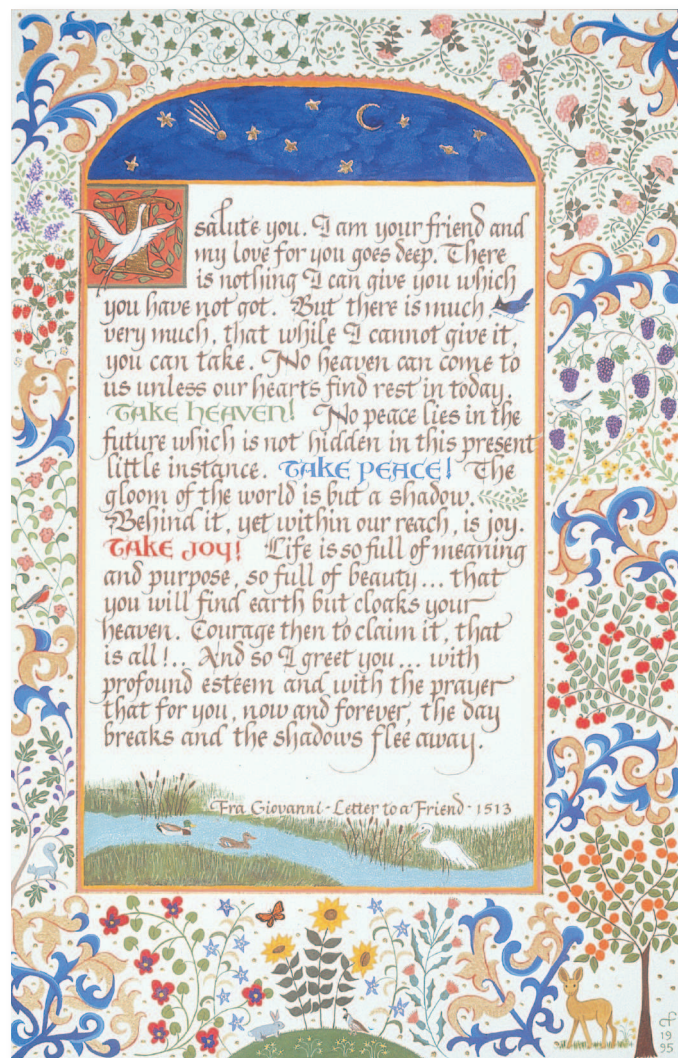 I salute you. I am your friend and
my love for you goes deep. There
is nothing I can give you which
you have not got. But there is much
very much, that while I cannot give it,
you can take. No heaven can come to
us unless our hearts find rest in today.
TAKE HEAVEN! No peace lies in the
future which is not hidden in this present
little instance. TAKE PEACE! The
gloom of the world is but a shadow.
Behind it, yet within our reach, is joy.
TAKE JOY! Life is so full of meaning
and purpose, so full of beauty... that
you will find earth but cloaks your
heaven. Courage then to claim it, that
is all!.. And so I greet you... with
profound esteem and with the prayer
that for you, now and forever, the day
breaks and the shadows flee away.
Fra Giovanni - Letter to a Friend - 1513
cf
19
95